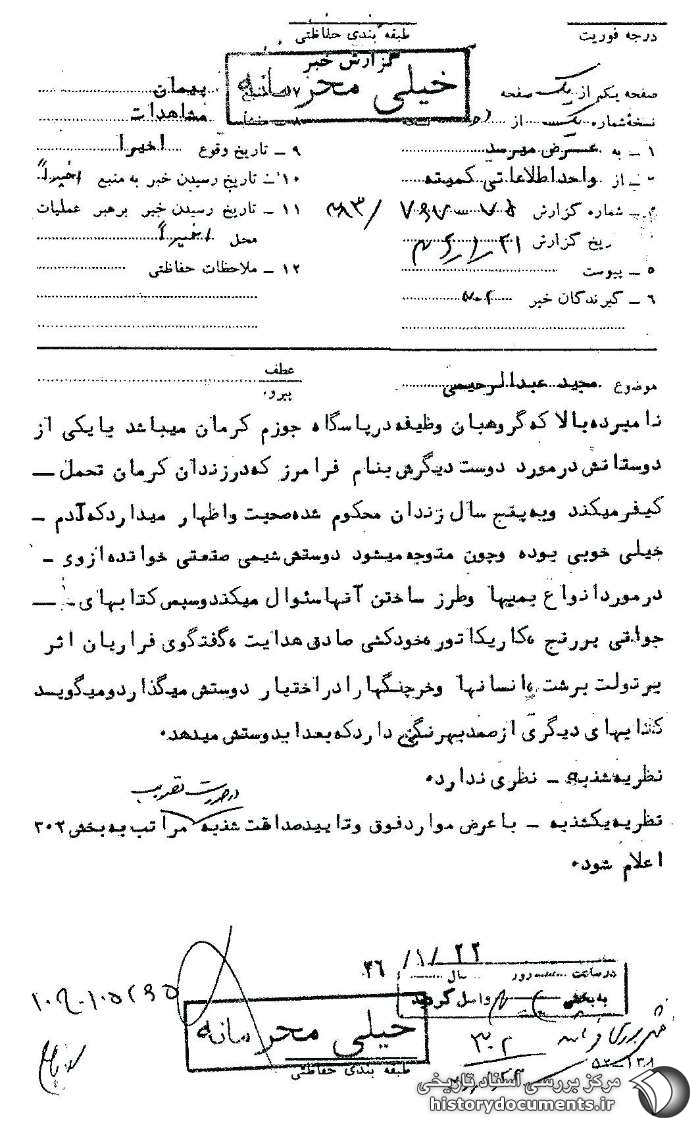 درجه فوریت
طبقه بندی حفاظتی
گزارش خبر
خیلی محرمانه
صفحه یکم از یک صفحه
نسخه شماره یک از
۱ ـ به عرض میرسد
۲ ـ از واحد اطلاعاتی کمیته
شماره گزارش
تاریخ گزارش
۵ ـ پیوست
۶ ـ گیرندگان خبر ۳۰۲
پیمان
۸ ـ مشاهدات
۹ ـ تاریخ وقوع اخیرا
۱۰ ـ تاریخ رسیدن خبر به منبع اخیراً
۱۱ ـ تاریخ رسیدن خبر برهبر عملیات
محل اخیراً
۱۲ ـ ملاحظات حفاظتی
موضوع مجید عبدالرحیمی
عطف
پیرو
نامبرده بالا که گروهبان وظیفه در پاسگاه جوزم کرمان میباشد با یکی از
دوستانش در مورد دوست دیگرش بنام فرامرز که در زندان کرمان تحمل ـ
کیفر میکند و به پنج سال زندان محکوم شده صحبت و اظهار میدارد که آدم ـ
خیلی خوبی بوده و چون متوجه میشود دوستش شیمی صنعتی خوانده از وی ـ
در مورد انواع بمبها و طرز ساختن آنها سئوال میکند و سپس کتابهای ـ
جوانی بر رنج ، کاریکاتور ، خودکشی صادق هدایت ، گفتگوی فراریان اثر
برتولت برشت ، انسانها و خرچنگها را در اختیار دوستش میگذارد و میگوید
کتابهای دیگری از صمد بهرنگی دارد که بعدا بدوستش میدهد.
نظریه شنبه ـ نظری ندارد.
در صورت تصویب
نظریه یکشنبه ـ با عرض موارد فوق و تایید صداقت شنبه مراتب به بخش ۳۰۲
اعلام شود.
۳۶ /۱/ ۲۲
در ساعت روز سال
به بخش واصل گردید
خیلی محرمانه
طبقه بندی حفاظتی
۳۰۲
مرکز بررسی اسناد تاریخی
historydocuments.ir